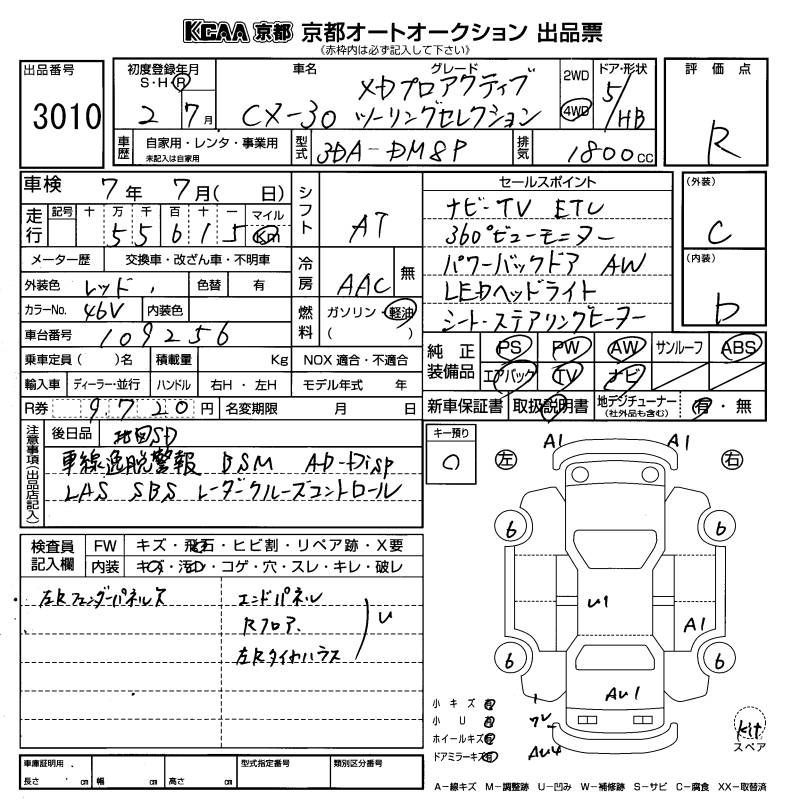 KCAA 京都 京都オートオークション 出品票
(赤枠内は必ず記入して下さい)
出品番号
3010
初度登録年月
S・H・R
2 7月
車名
CX-30
グレード
XDプロアクティブ
ツーリングセレクション
2WD
4WD
ドア・形状
5/HB
評価点
R
車歴
自家用・レンタ・事業用
未記入は自家用
型式
3DA-DM8P
排気
1800cc
車検
7年 7月( 日)
シフト
AT
走行
記号 十 万 千 百 十 一 マイル
5 5 6 1 5 Km
メーター歴 交換車・改ざん車・不明車
冷房
AAC
無
外装色
レッド
色替 有
カラーNo.
46V
内装色
燃料
ガソリン・軽油
( )
車台番号
109256
乗車定員( )名
積載量 Kg
NOX 適合・不適合
輸入車 ディーラー・並行 ハンドル 右H・左H モデル年式 年
R券 9,720円
名変期限 月 日
セールスポイント
ナビ-TV ETC
360°ビューモニター
パワーバックドア AW
LEDヘッドライト
シート・ステアリングヒーター
(外装)
C
(内装)
D
純正装備品
PS PW AW サンルーフ ABS
エアバック TV ナビ
新車保証書 取扱説明書 地デジチューナー
(社外品も含む)
有・無
注意事項(出品店記入)
後日品
地図SD
車線逸脱警報 BSM AD-Disp
LAS SBS レーダークルーズコントロール
キー預り
0
検査員記入欄
FW キズ・飛石・ヒビ割・リペア跡・X要
内装 キズ・汚コレ・コゲ・穴・スレ・キレ・破レ
左Rフェンダーパネルス
エンドパネル
Rフロア
左Rタイヤハウス
U
左
右
A1 A1
6 6
U1
A1
6 6
AU1
小キズ有
小U有
ホイールキズ有
ドアミラーキズ有
AU4
kit
スペア
車庫証明用
長さ cm 幅 cm 高さ cm
型式指定番号
類別区分番号
A−線キズ M−調整跡 U−凹み W−補修跡 S−サビ C−腐食 XX−取替済